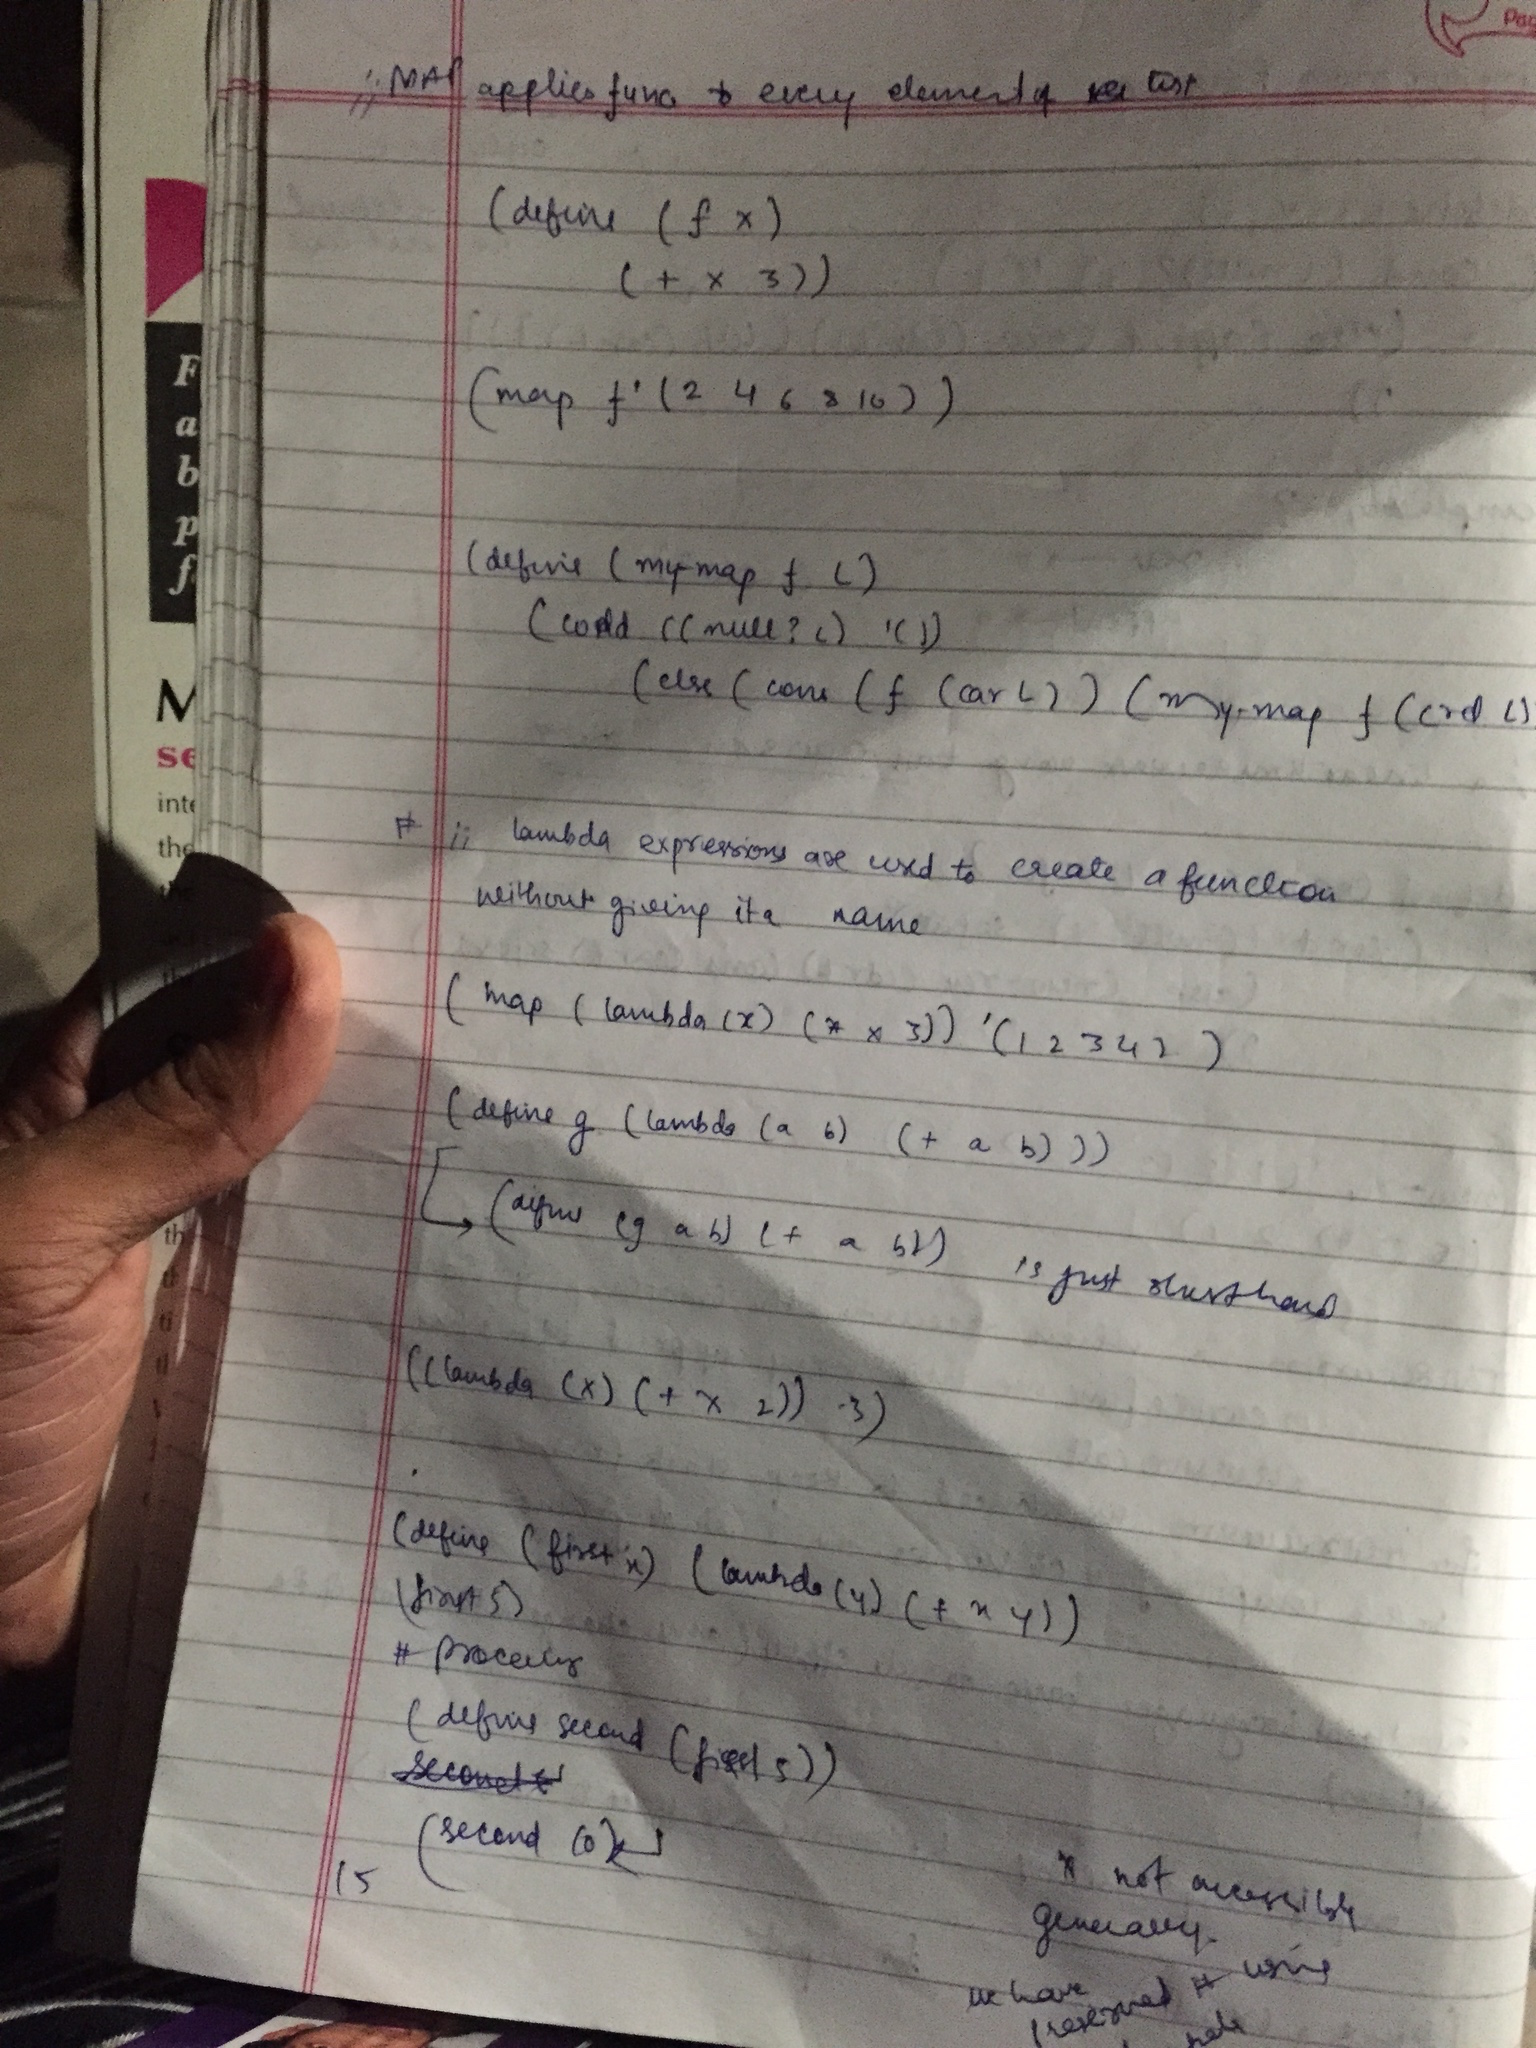 Pag
;; MAP applies func to every element of list
(define (f x)
(+ x 3))
(map f '(2 4 6 8 10))
(define (my-map f L)
(cond ((null? L) '())
(else (cons (f (car L)) (my-map f (crd L)
# ;; lambda expressions are used to create a function
without giving it a name
(map (lambda (x) (* x 3)) '(1 2 3 4 ) )
(define g (lambda (a b) (+ a b)))
(define (g a b) (+ a b)) is just shorthand
((lambda (x) (+ x 2)) 3)
(define (first x) (lambda (y) (+ x y))
(first 5)
#
(define second (first 5))
(second 10)
15
x not accessible
generally.
we have
reserved # using
F
a
b
p
f
M
se
inte
the
th
ti